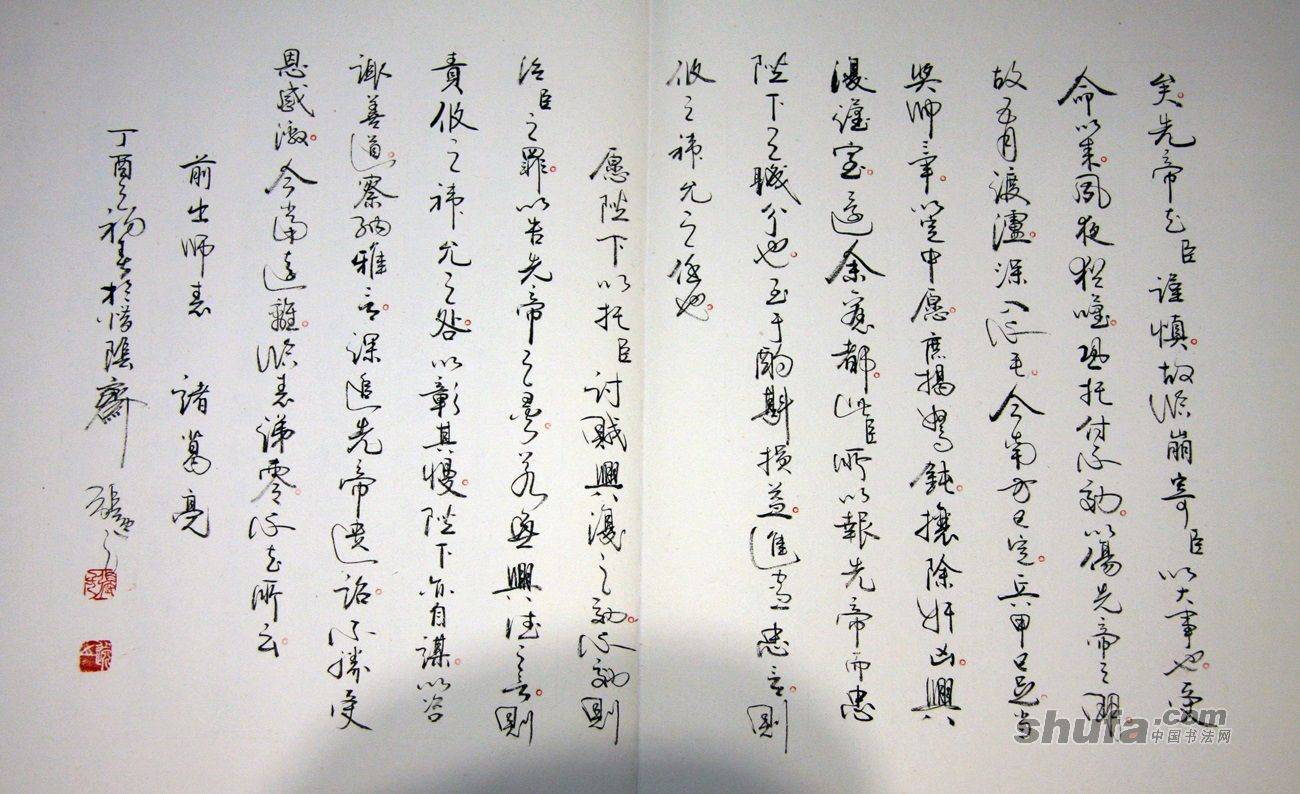 矣先帝知臣謹慎故临崩寄臣以大事也受
命以来夙夜忧嘆恐托付不効以傷先帝之明
故五月渡瀘深入不毛今南方已定兵甲已足当
奖帅三军以定中愿庶揭驽鈍攘除奸凶興
復漢室还余旧都此臣所以報先帝而忠
陛下之職分也至于酌斟損益進盡忠言則
攸之祎允之任也
愿陛下以托臣討賊興復之効不効則
治臣之罪以告先帝之灵若無興德之言則
責攸之祎允之咎以彰其慢陛下亦自謀以咨
諏善道察納雅言深追先帝遗詔不勝受
恩感激今當遠離临表涕零不知所云
前出师表 諸葛亮
丁酉之初春於惜陰齋
shufa.com
中国书法网